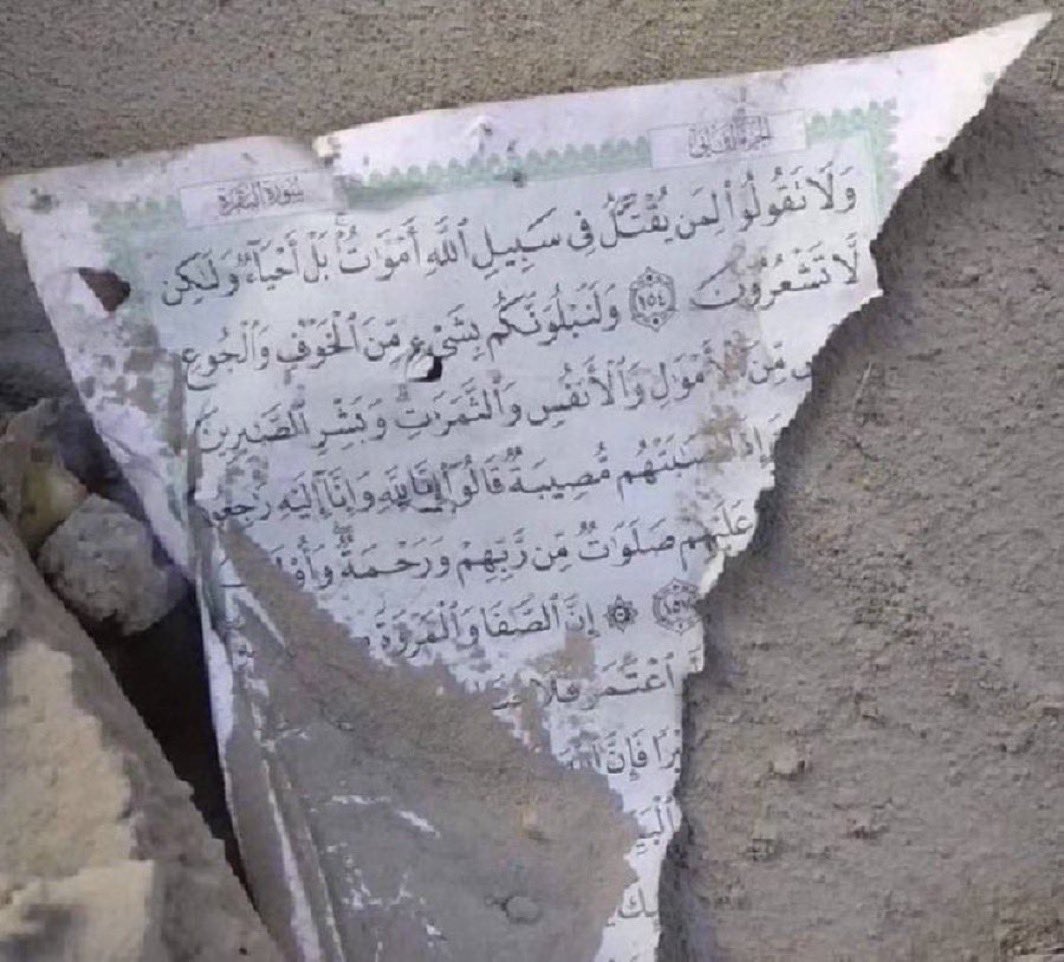 الجزء الثاني
سورة البقرة
وَلَا تَقُولُوا۟ لِمَن يُقْتَلُ فِى سَبِيلِ ٱللَّهِ أَمْوَٰتٌۢ بَلْ أَحْيَآءٌ وَلَـٰكِن
لَّا تَشْعُرُونَ ١٥٤ وَلَنَبْلُوَنَّكُم بِشَىْءٍ مِّنَ ٱلْخَوْفِ وَٱلْجُوعِ
مِّنَ ٱلْأَمْوَٰلِ وَٱلْأَنفُسِ وَٱلثَّمَرَٰتِ وَبَشِّرِ ٱلصَّـٰبِرِينَ
إِذَآ أَصَـٰبَتْهُم مُّصِيبَةٌ قَالُوٓا۟ إِنَّا لِلَّهِ وَإِنَّآ إِلَيْهِ
عَلَيْهِمْ صَلَوَٰتٌ مِّن رَّبِّهِمْ وَرَحْمَةٌ
إِنَّ ٱلصَّفَا وَٱلْمَرْوَةَ
ٱعْتَمَرَ فَلَا
فَإِنَّ ٱللَّهَ